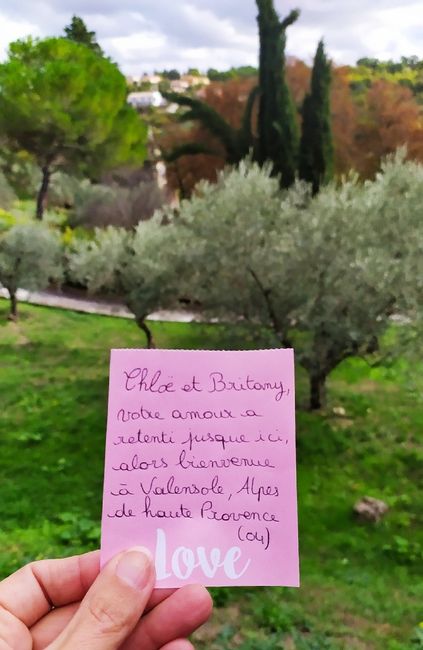 Chloë et Britany,
votre amour a
retenti jusque ici,
alors bienvenue
à Valensole, Alpes
de haute Provence
(04)
Love